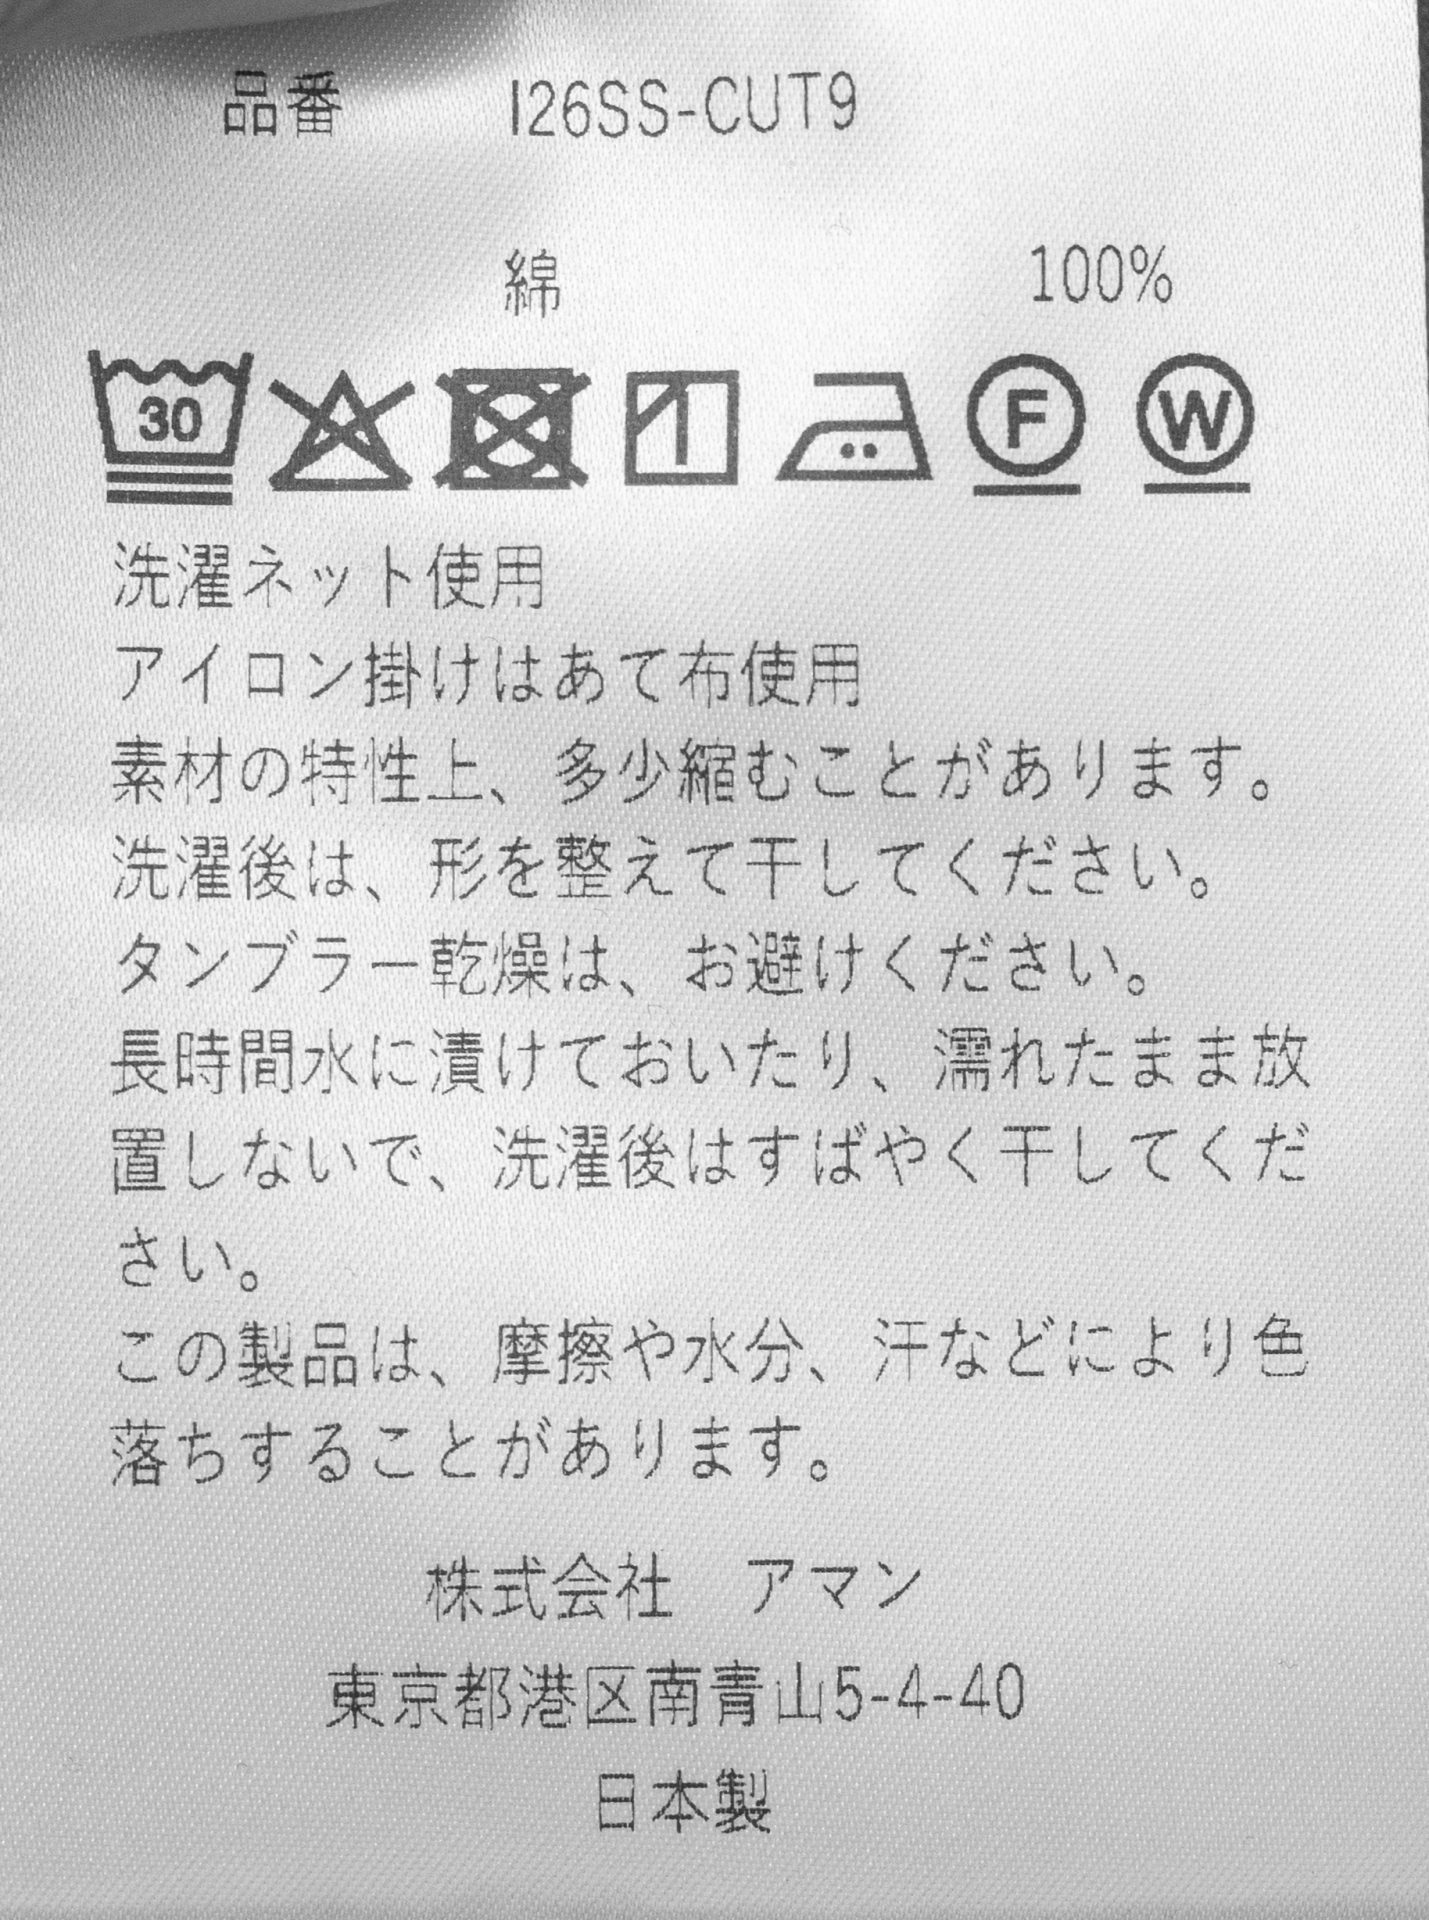 品番 I26SS-CUT9
綿 100%
30 F W
洗濯ネット使用
アイロン掛けはあて布使用
素材の特性上、多少縮むことがあります。
洗濯後は、形を整えて干してください。
タンブラー乾燥は、お避けください。
長時間水に漬けておいたり、濡れたまま放
置しないで、洗濯後はすばやく干してくだ
さい。
この製品は、摩擦や水分、汗などにより色
落ちすることがあります。
株式会社 アマン
東京都港区南青山5-4-40
日本製